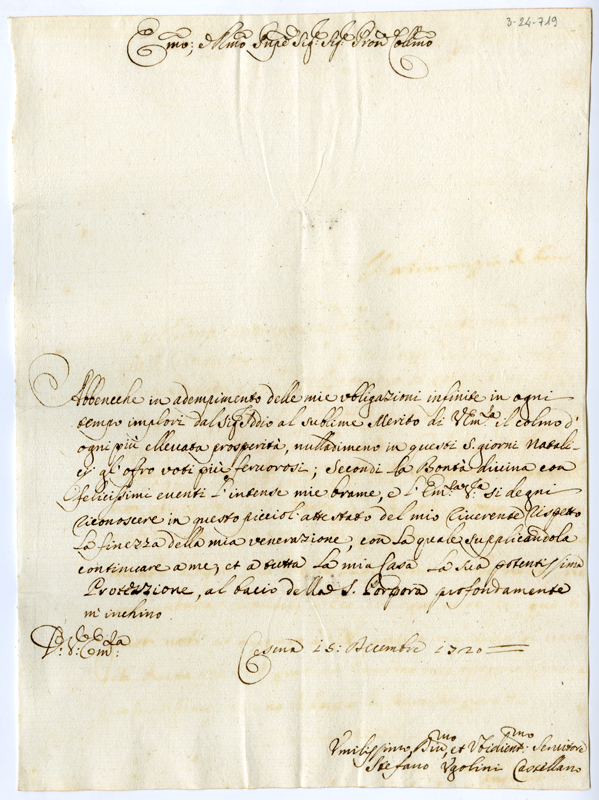 3-24-719
Emo; e Rmo Sigre Sigr: Sigr: Pron Collmo
Abbenche in adempimento delle mie obligazioni infinite in ogni
tempo implori dal Sigr Iddio al sublime Merito di V: Emza il colmo d'
ogni più ellevata prosperità, nulladimeno in questi S. giorni Natali-
zi gl'ofro voti più fervorosi; Secondi la Bontà divina con
felicissimi eventi l'intense mie brame, e l'Emza V: si degni
riconoscere in questo picciol' attestato del mio riverente Rispetto
la finezza della mia venerazione, con la quale supplicandola
continuare a me, et a tutta la mia Casa la sua potentissima
Protezzione, al bacio della S. Porpora profondamente
m'inchino
D: V: Emza:
Cesena 15: Decembre 1720
Umilissimo Divmo, et Obedientmo Servitore
Stefano Ugolini Castellano